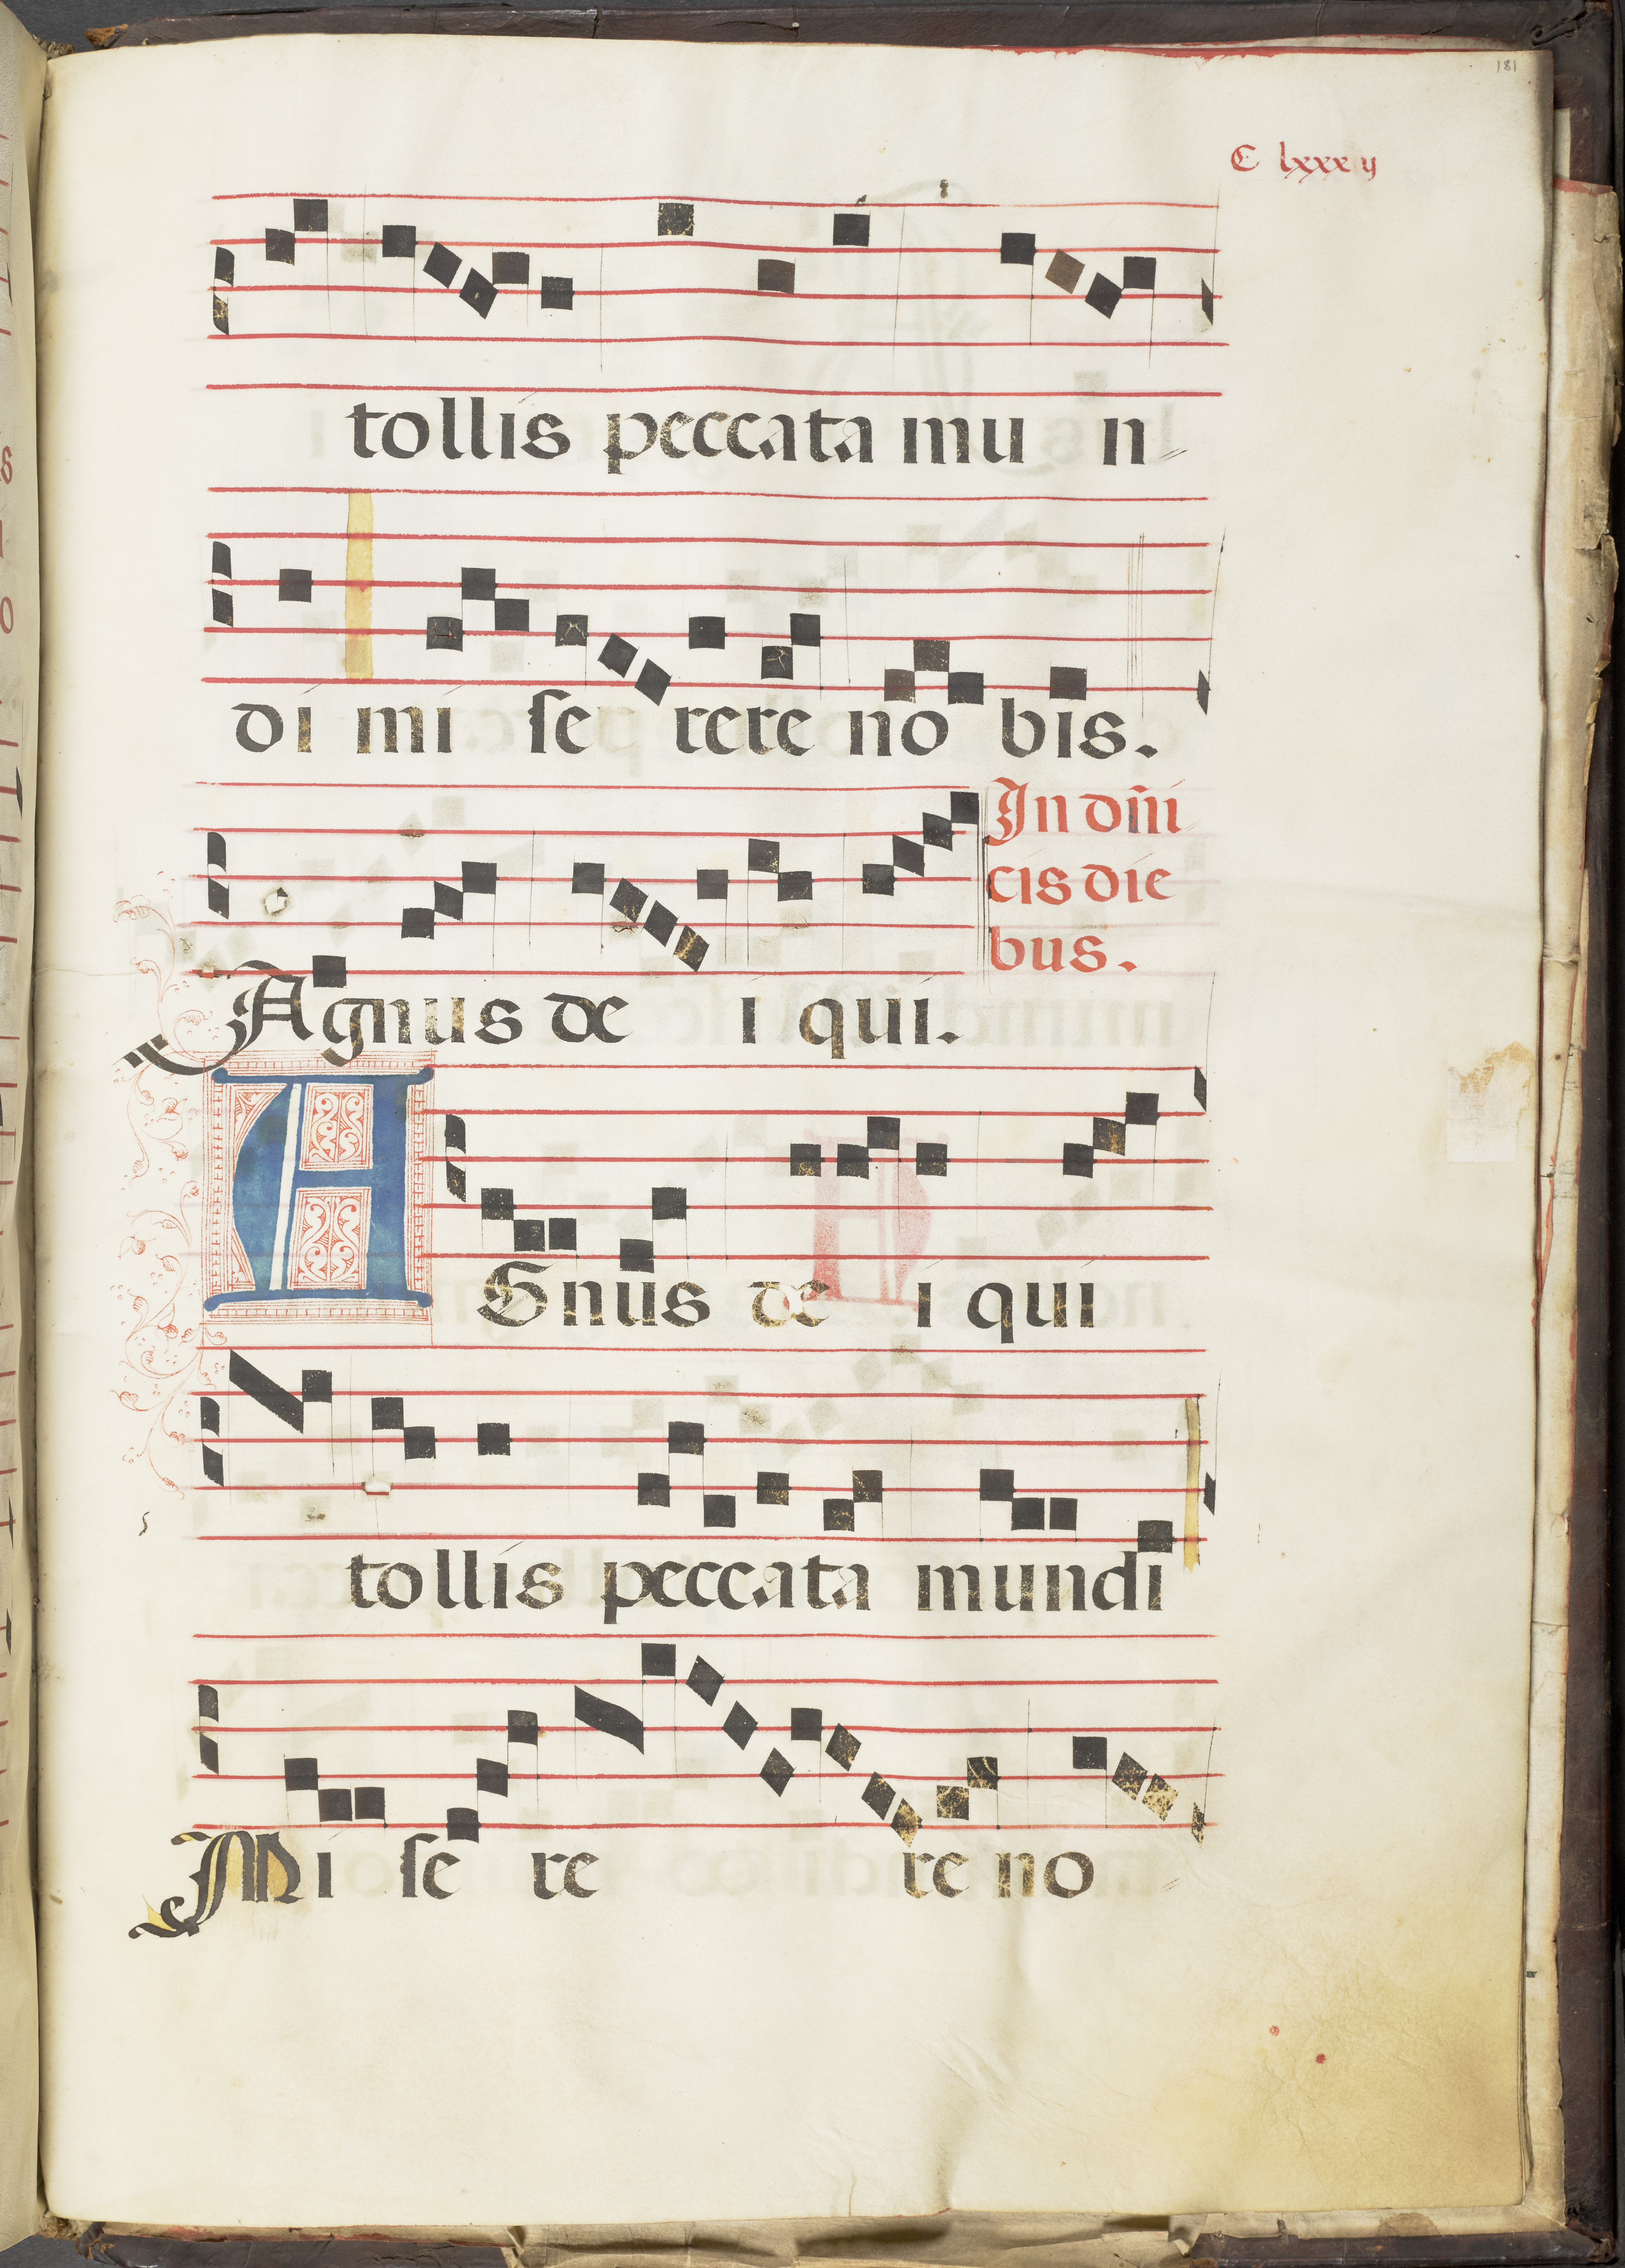 181
C lxxxij
tollis peccata mu n
di mi se rere no bis.
In dñi
cis die
bus.
Agnus de i qui.
AGnus de i qui
tollis peccata mundi
Mi se re re no